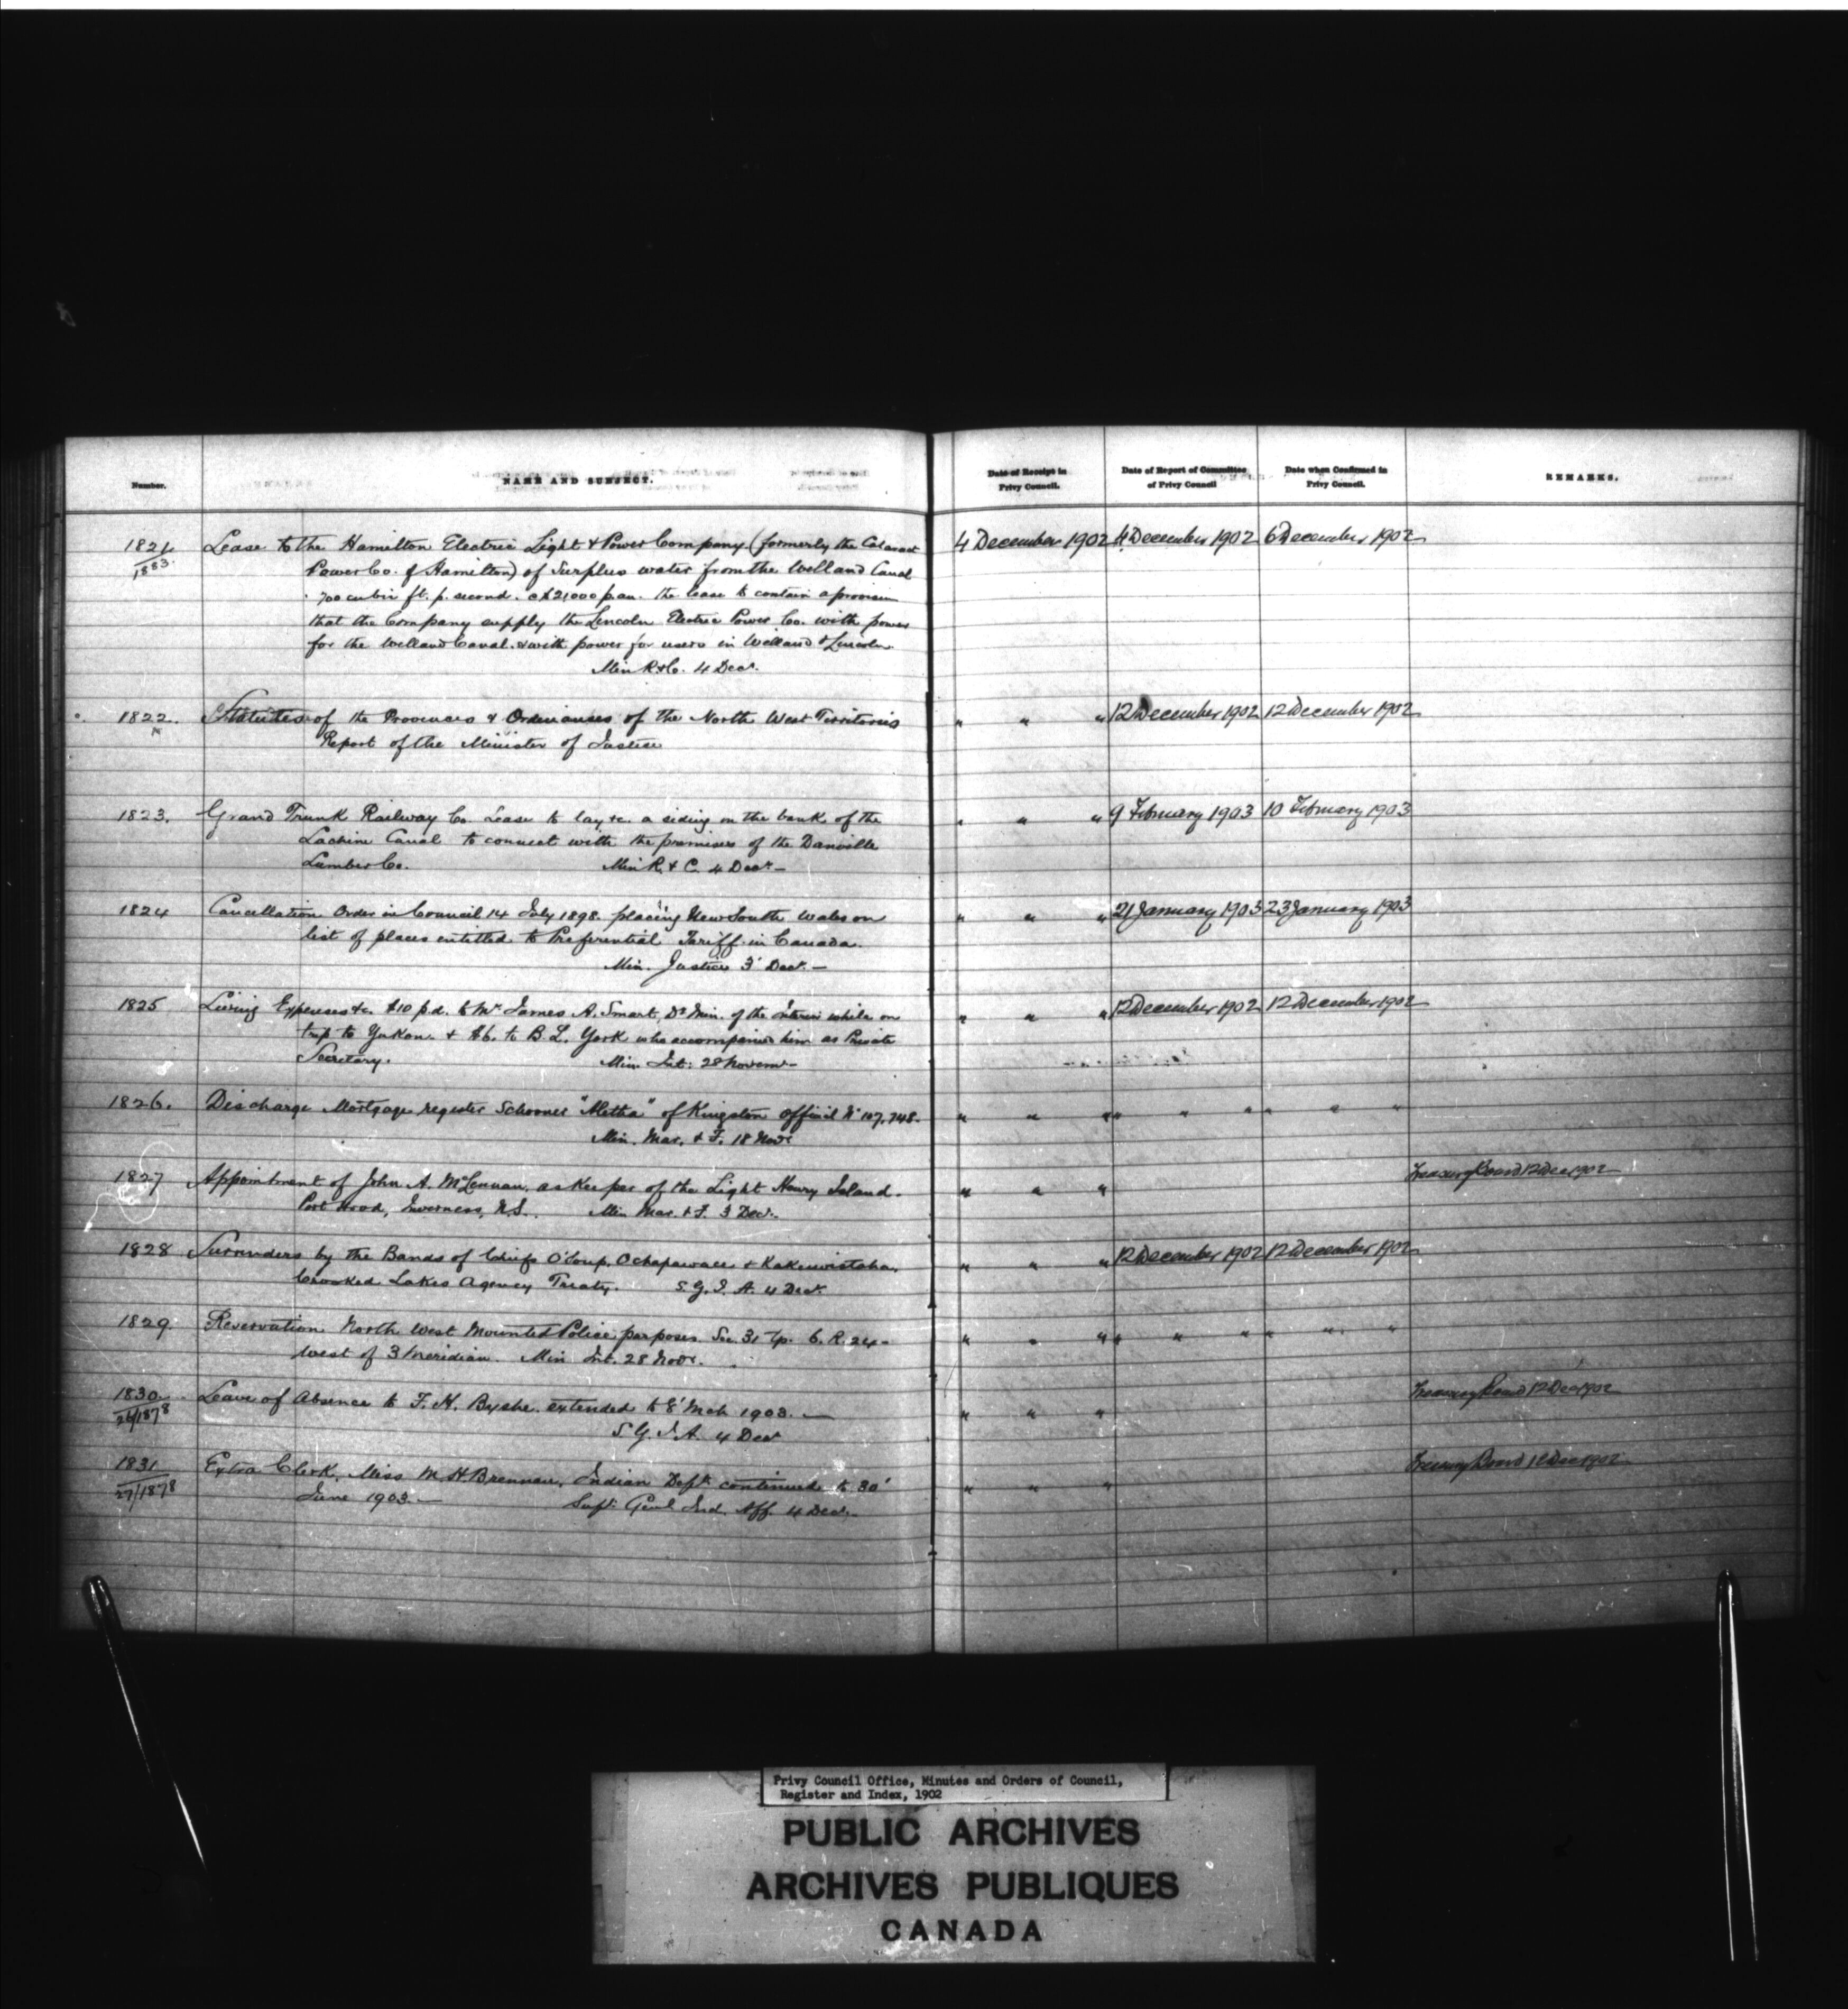 Number. NAME AND SUBJECT. Date of Receipt in Privy Council. Date of Report of Committee of Privy Council Date when Confirmed in Privy Council. REMARKS.
1821 Lease to the Hamilton Electric Light & Power Company (formerly the Cataract 4 December 1902 4 December 1902 6 December 1902
1883. Power Co. of Hamilton) of Surplus water from the Welland Canal
700 cubic ft. p. second. @ $21,000 p. an. the lease to contain a provision
that the Company supply the Lincoln Electric Power Co. with power
for the Welland Canal. & with power for users in Welland & Lincoln.
Min R. & C. 4 Decr.
1822. Statutes of the Provinces & Ordinances of the North West Territories " " " 12 December 1902 12 December 1902
Report of the Minister of Justice
1823. Grand Trunk Railway Co. Lease to lay &c. a siding on the bank of the " " " 9 February 1903 10 February 1903
Lachine Canal to connect with the premises of the Danville
Lumber Co. Min R. & C. 4 Decr. —
1824 Cancellation Order in Council 14 July 1898. placing New South Wales on " " " 21 January 1903 23 January 1903
list of places entitled to Preferential Tariff in Canada.
Min. Justice 3' Decr. —
1825 Living Expenses &c. $10 p.d. to Mr James A. Smart, Dy Min. of the Interior while on " " " 12 December 1902 12 December 1902
trip to Yukon. & $6. to B. L. York who accompanied him as Private
Secretary. Min. Int: 28 Novem —
1826. Discharge Mortgage register Schooner "Metha" of Kingston official No 107,748. " " " " " " " " "
Min. Mar. & F. 18 Novr
1827 Appointment of John A. McLennan, as Keeper of the Light Henry Island. " " " Treasury Board 12 Dec 1902
Port Hood, Inverness, N.S. Min Mar. & F. 3 Decr.
1828 Surrenders by the Bands of Chiefs O'Soup, Ochapawace & Kakewistaha, " " " 12 December 1902 12 December 1902
Crooked Lakes Agency Treaty. S. G. I. A. 4 Decr
1829. Reservation North West Mounted Police purposes. Sec. 31 Tp. 6. R. 24 - " " " " " " " " "
West of 3 Meridian. Min Int. 28 Novr.
1830. Leave of Absence to F. H. Byshe extended to 8' Mch 1903. — " " " Treasury Board 12 Dec 1902
26/1878 S. G. I. A. 4 Decr
1831 Extra Clerk, Miss M. H. Brennan, Indian Deptt continued to 30' " " " Treasury Board 12 Dec 1902
27/1878 June 1903. — Supt. Genl Ind. Aff. 4 Decr. —
Privy Council Office, Minutes and Orders of Council,
Register and Index, 1902
PUBLIC ARCHIVES
ARCHIVES PUBLIQUES
CANADA